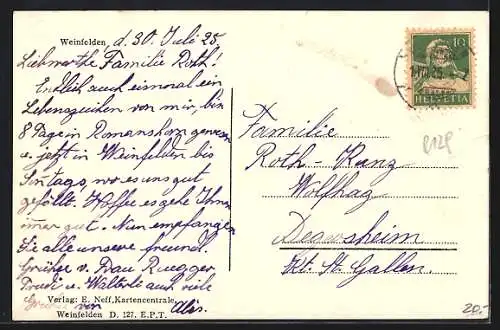 Weinfelden, d. 30 Juli 25.
Liebwerthe Familie Roth!
Endlich auch eismoral ein
Lebenszeichen von mir, bin
8 Tage in Romanshorn gewesen
u. jetzt in Weinfelden bis
Sontags, wo es uns gut
gefällt. Hoffe es gehe Ihnen
immer gut. Nun empfangen
Sie alle unsere freundl.
Grüsse v. Frau Ruegger,
Trudi u. Walterli auch viele
von
Verlag: E. Neff, Kartencentrale,
Weinfelden D. 127. E.P.T.
10
HELVETIA
Familie
Roth-Kunz
Wolfhag
Degersheim
Kt. St. Gallen.
20.-